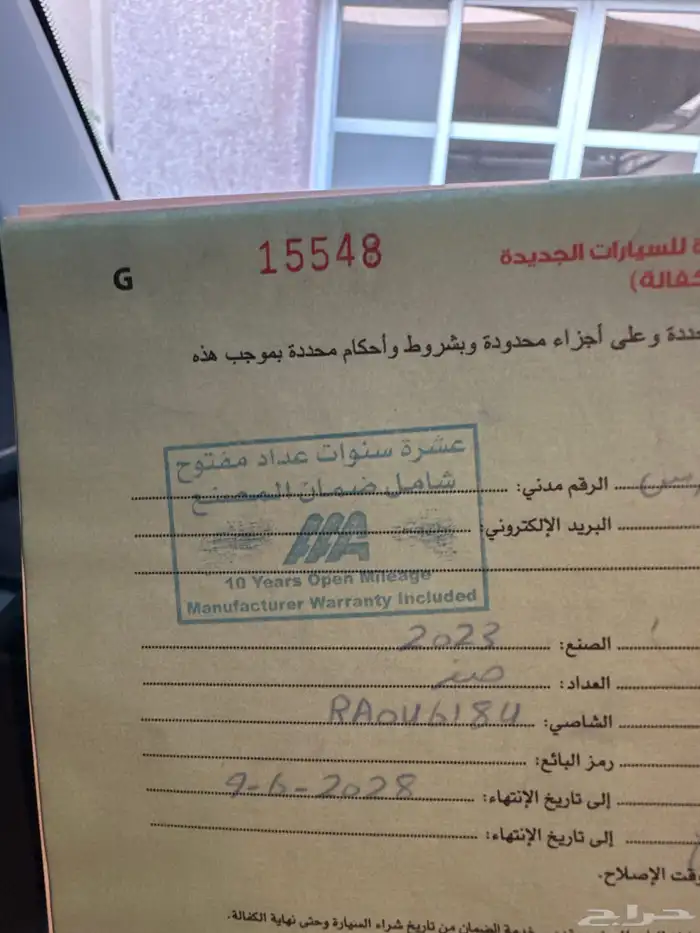 G
15548
ة للسيارات الجديدة
كفالة)
حددة وعلى أجزاء محدودة وبشروط وأحكام محددة بموجب هذه
عشرة سنوات عداد مفتوح
شامل ضمان المصنع
AAA
10 Years Open Mileage
Manufacturer Warranty Included
الرقم مدني:
البريد الإلكتروني:
الصنع: 2023
العداد: صفر
الشاصي: RA046184
رمز البائع:
إلى تاريخ الإنتهاء: 9-6-2028
إلى تاريخ الإنتهاء:
وقت الإصلاح.
خدمة الضمان من تاريخ شراء السيارة وحتى نهاية الكفالة.
حراج